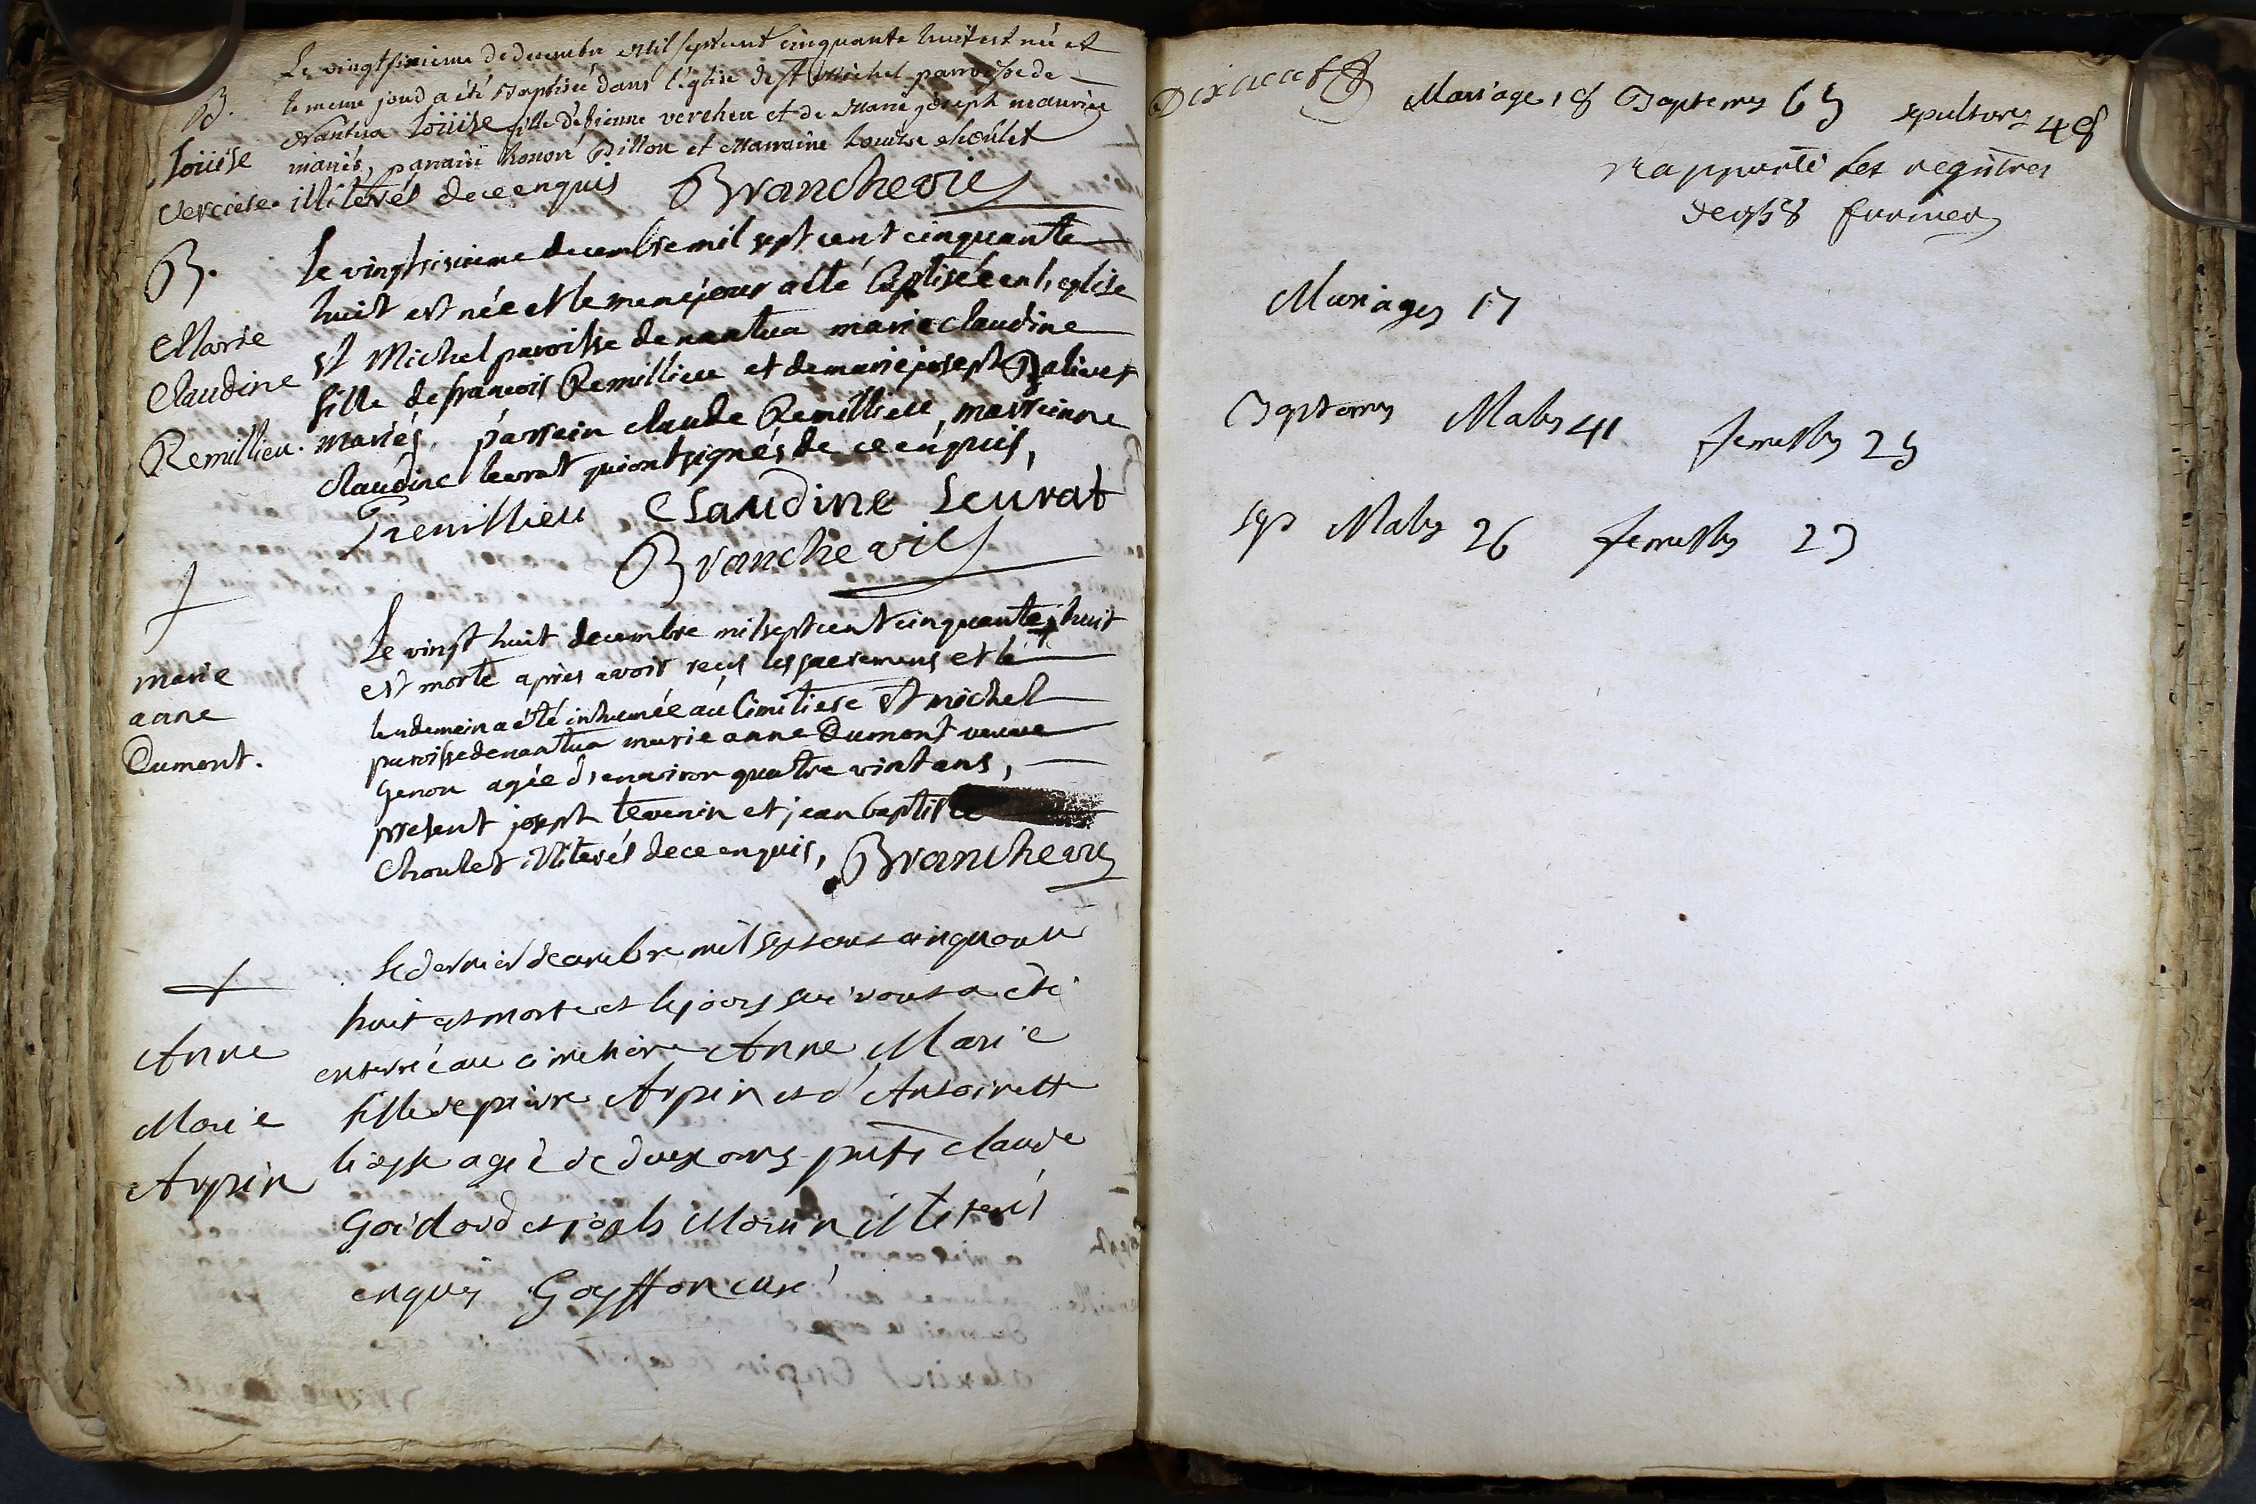 B.
Loüise
Verchere.
Le vingtsixieme de decembre Mil septcent cinquante huit est né et
le meme jour a été Baptisée dans l'eglise de st Michel parroisse de
Nantua Loüise fille d'etienne verchere et de Marie joseph maurier
mariés, parrain honoré Billon et Marraine Louise choulet
illiterés de ce enquis Brancheavie
B.
Marie
Claudine
Remillieu.
Le vingtsixieme decembre mil sept cent cinquante
huit est née et le meme jour a été baptisée en l'eglise
st Michel paroisse de nantua marie claudine
fille de francois Remillieu et de marie joseph
mariés, parrain claude Remillieu, marreinne
Claudine leurat qui ont signés de ce enquis,
Remillieu Claudine Leurat
Brancheavie
marie
anne
Dumont.
Le vingt huit decembre mil sept cent cinquante huit
est morte apres avoir recus les sacremens et le
lendemein a été inhumée au Cimitiere st michel
paroisse de nantua marie anne Dumont veuve
Genou agée d'environ quatre vint ans,
present joseph tevenin et jean baptiste
Choulet illiterés de ce enquis, Brancheavie
Anne
Marie
Arpin
Le dernier decembre mil sept cent cinquante
huit est morte et le jour suivant a été
enterré au cimetiere Anne Marie
fille de pierre Arpin et d'Antoinette
agé de deux ans prets claude
et joseph Morin illiterés
enquis Goyffon curé
Dixneuf
Mariages 18 Baptemes 65 sepultures 48
rapporté les registres
de 1758
Mariages 17
Baptemes Males 41 femelles 25
sep Males 26 femelles 23